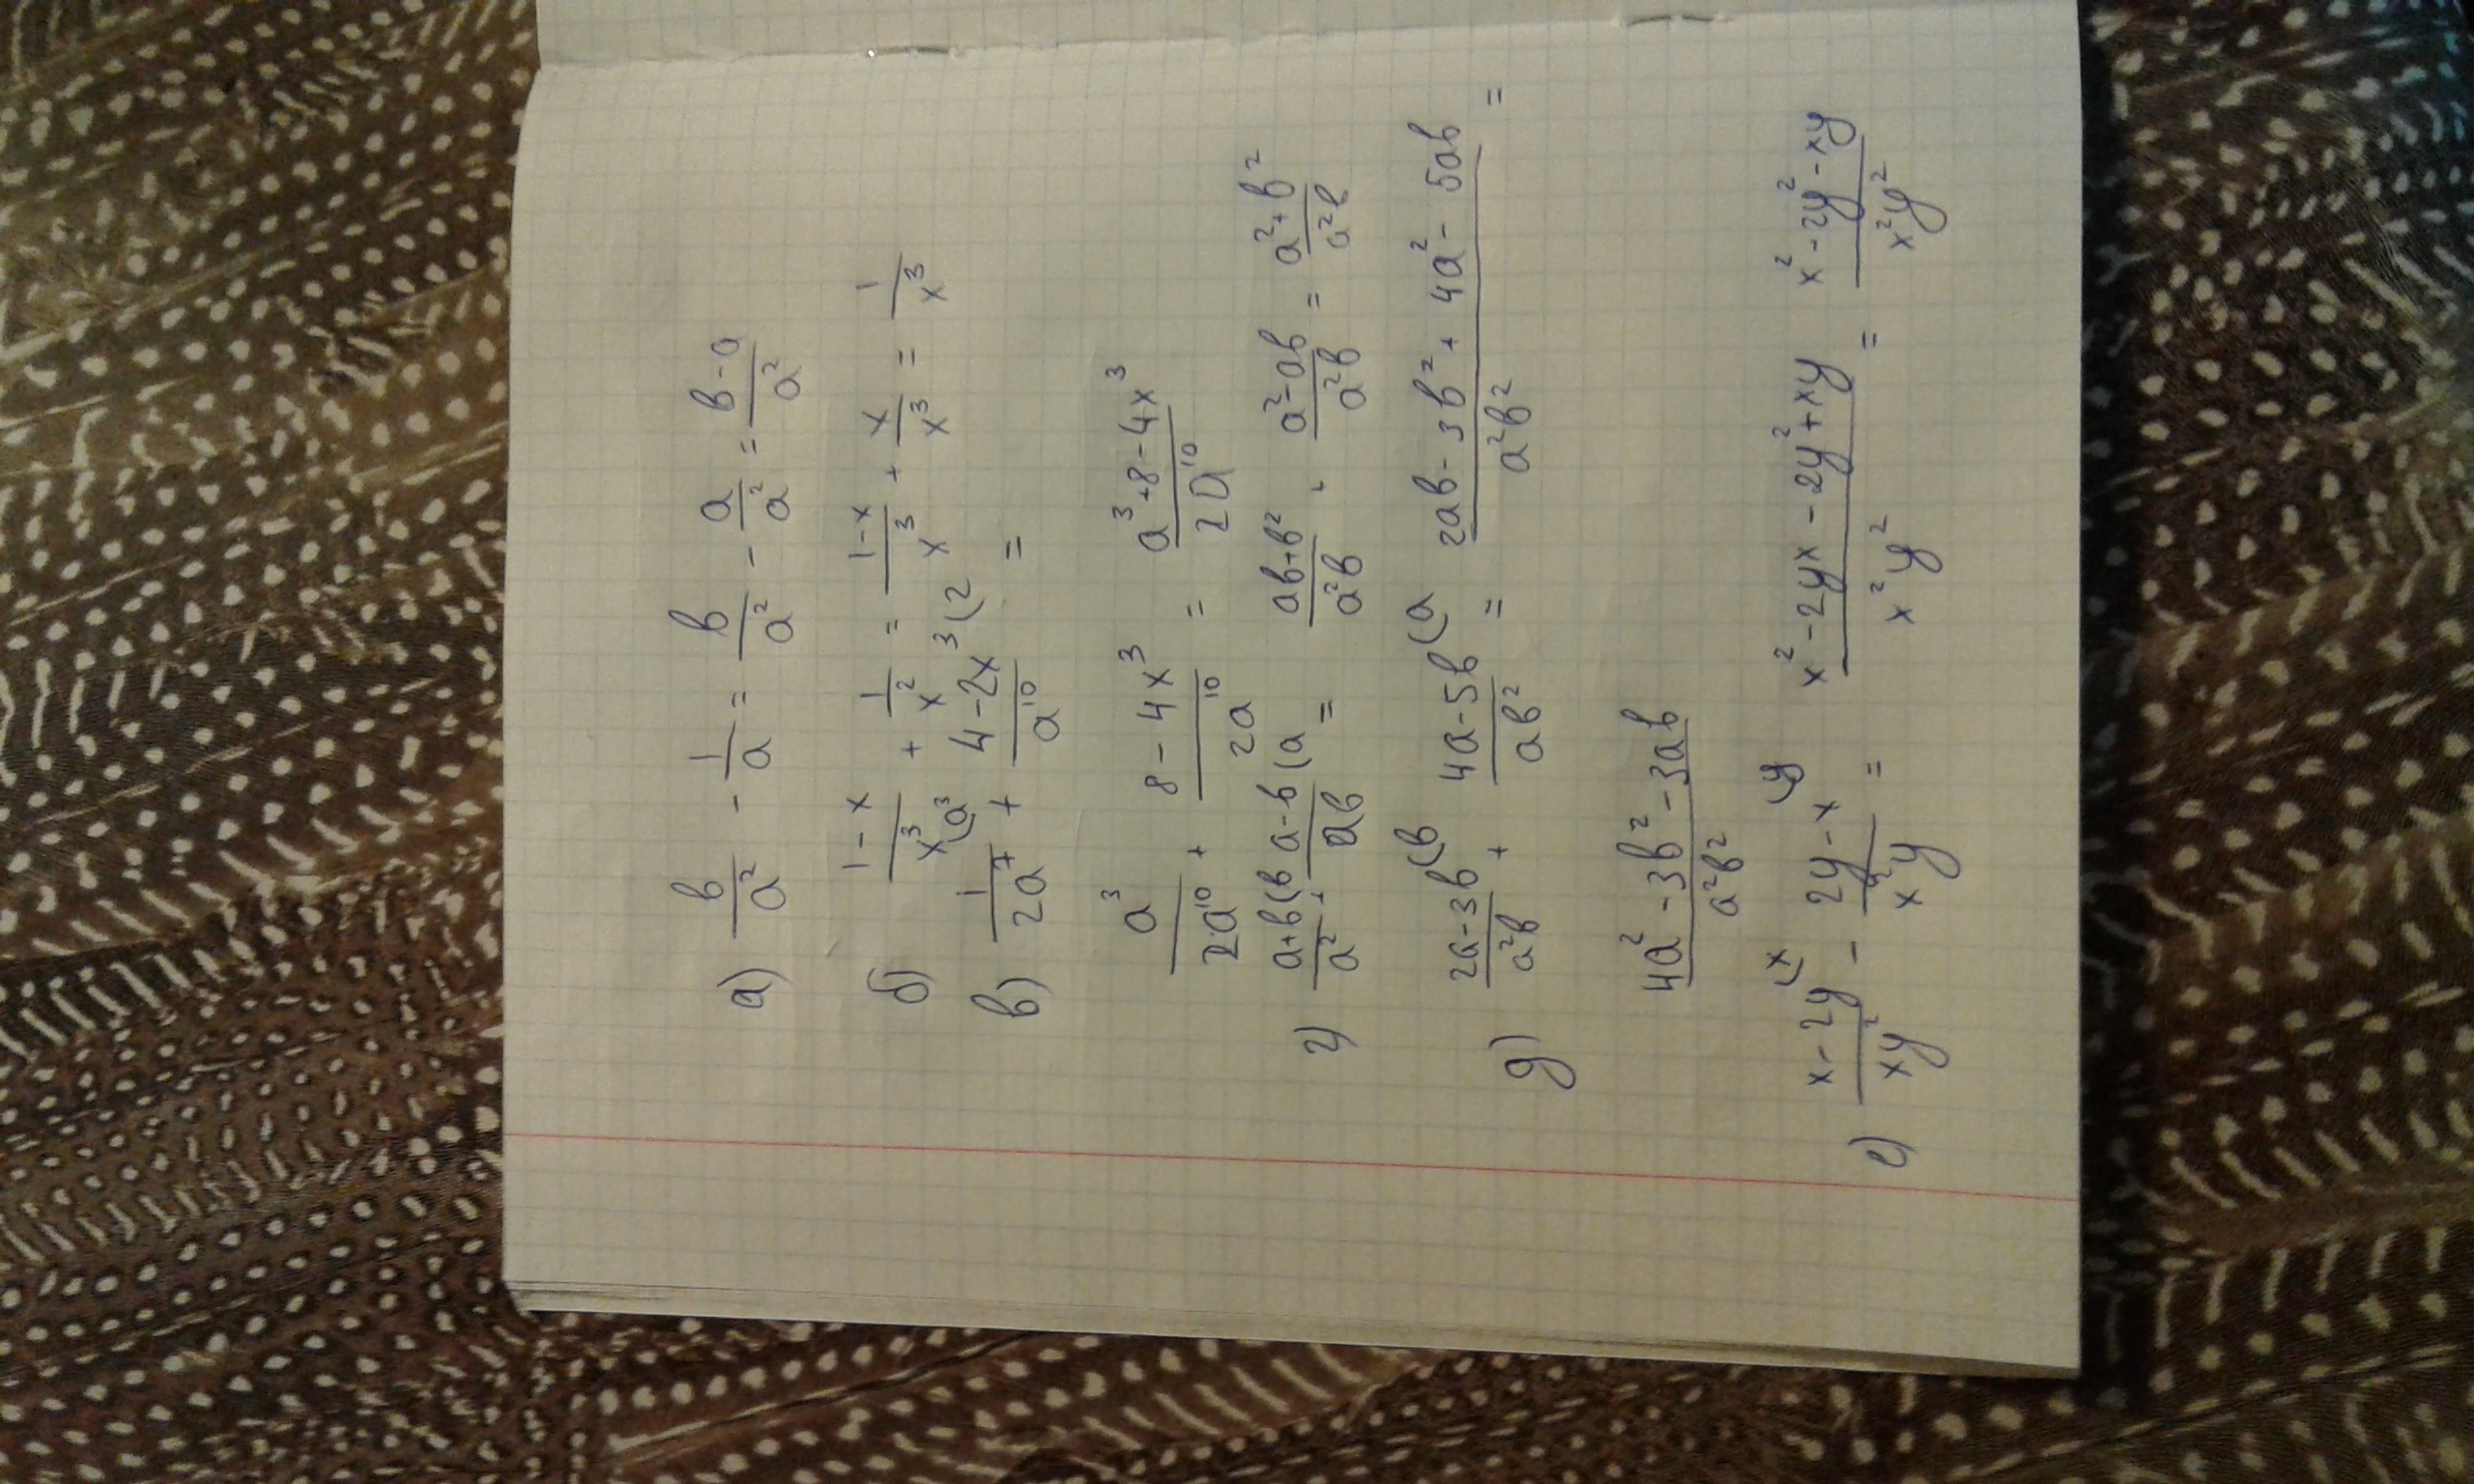 а) в/a² - 1/a = в/a² - a/a² = в-a/a²
б) 1-x/x³ + 1/x² = 1-x/x³ + x/x³ = 1/x³
в) 1/2a⁷ (a³ + 4-2x³/a¹⁰ (2 =
a³/2a¹⁰ + 8-4x³/2a¹⁰ = a³+8-4x³/2a¹⁰
г) a+в/a² (в + a-в/aв (a = aв+в²/a²в + a²-aв/a²в = a²+в²/a²в
д) 2a-3в/a²в (в + 4a-5в/aв² (a = 2aв-3в²+4a²-5aв/a²в² =
4a²-3в²-3aв/a²в²
е) x-2y/xy² (x - 2y-x/x²y (y = x²-2yx-2y²+xy/x²y² = x²-2y²-xy/x²y²